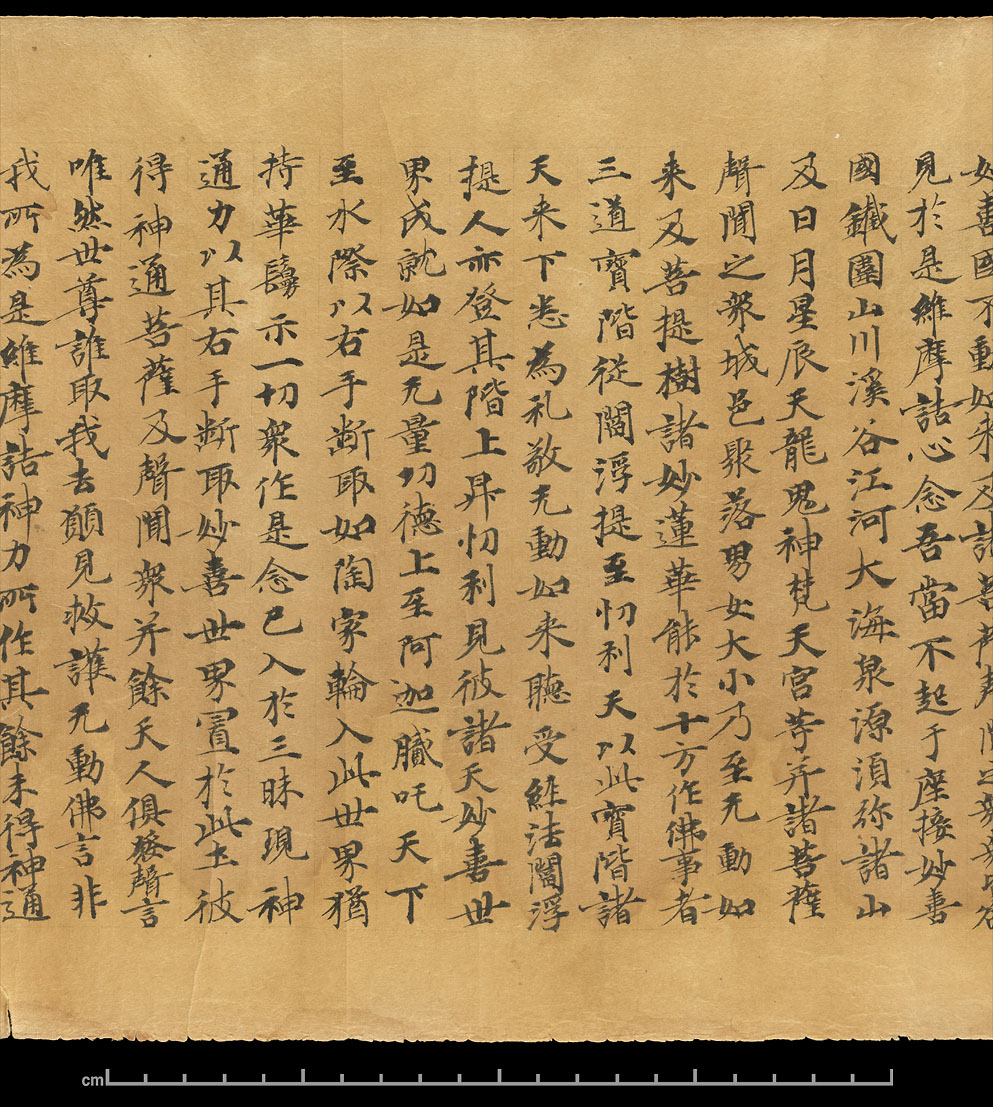 喜國不動如来及諸菩薩聲聞之衆
見於是維摩詰心念吾當不起于座接妙善
國鐵圍山川溪谷江河大海泉源湏弥諸山
及日月星辰天龍鬼神梵天宮等并諸菩薩
聲聞之衆城邑聚落男女大小乃至无動如
来及菩提樹諸妙蓮華能於十方作佛事者
三道寶階從閻浮提至忉利天以此寶階諸
天来下悉為礼敬无動如来聽受經法閻浮
提人亦登其階上昇忉利見彼諸天妙善世
界成就如是无量功德上至阿迦膩吒天下
至水際以右手断取如陶家輪入此世界猶
持華鬘示一切衆作是念已入於三昧現神
通力以其右手断取妙喜世界置於此土彼
得神通菩薩及聲聞衆并餘天人俱發聲言
唯然世尊誰取我去願見救護无動佛言非
我所為是維摩詰神力所作其餘未得神通
cm